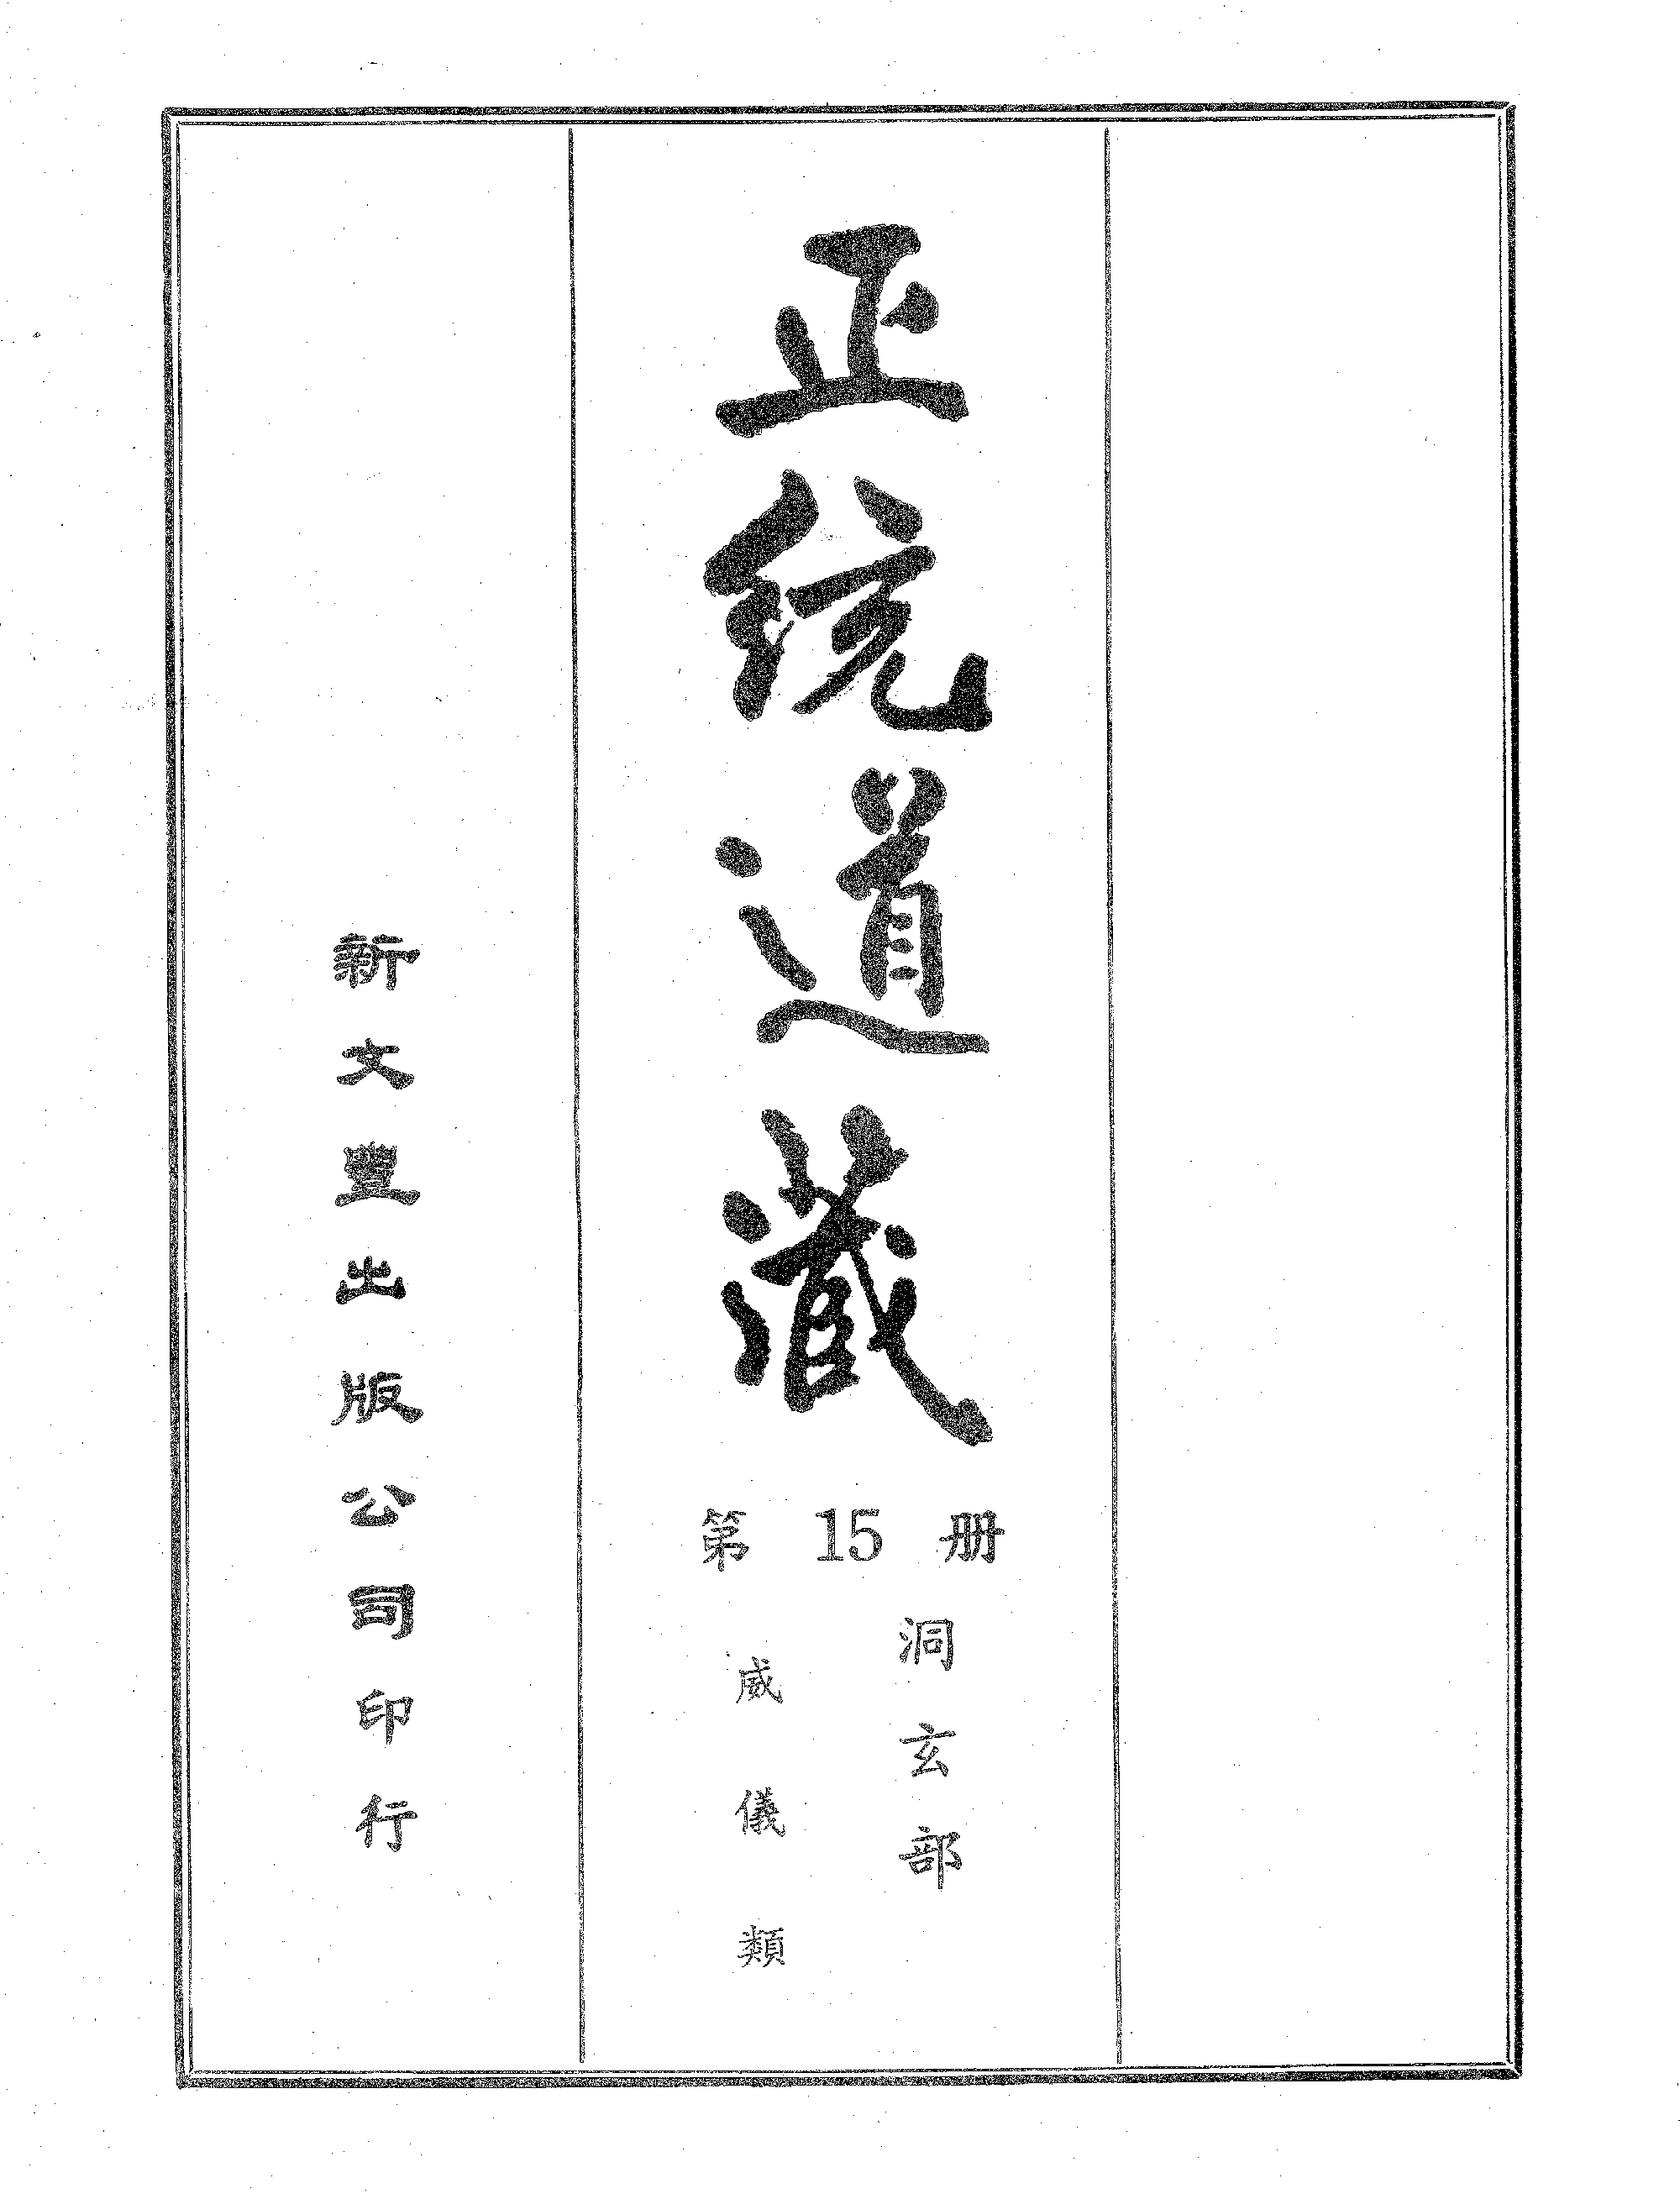 正統道藏
第15册
洞玄部
威儀類
新文豐出版公司印行